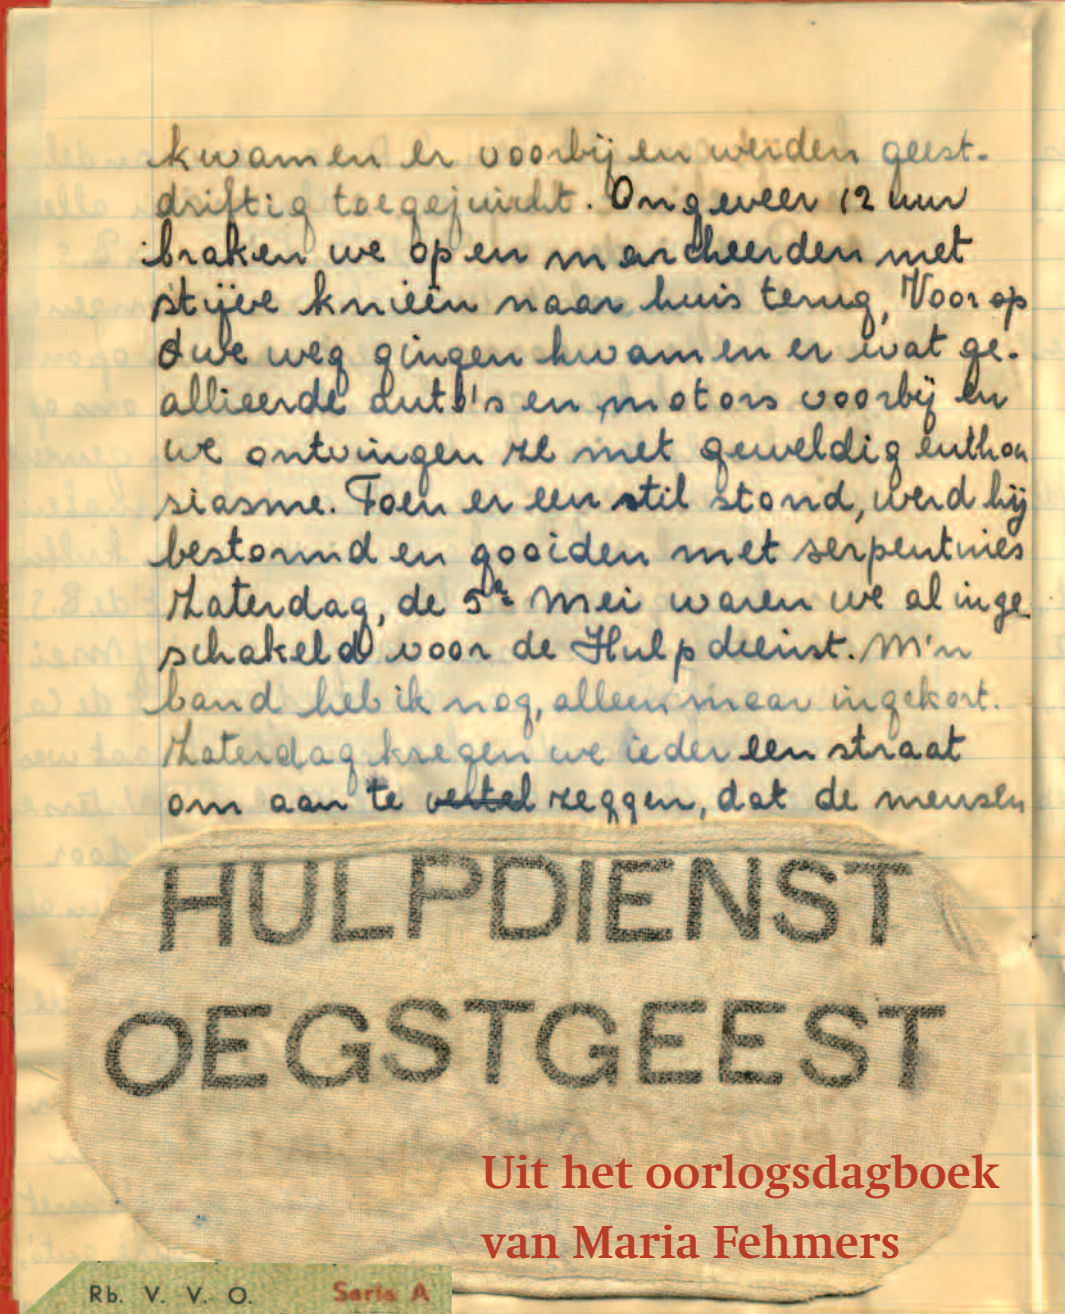 kwamen er voorbij en werden geest-
driftig toegejuicht. Ongeveer 12 uur
braken we op en marcheerden met
stijve knieën naar huis terug, Voor op
d we weg gingen kwamen er wat ge-
allieerde auto's en motors voorbij en
we ontvingen ze met geweldig enthou
siasme. Toen er een stil stond, werd hij
bestormd en gooiden met serpentines
Zaterdag, de 5de Mei waren we al inge
schakeld voor de Hulpdienst. M'n
band heb ik nog, alleen maar ingekort.
Zaterdag kregen we ieder een straat
om aan te vertel zeggen, dat de mensen
HULPDIENST
OEGSTGEEST
Uit het oorlogsdagboek
van Maria Fehmers
Rb. V. V. O. Serie A